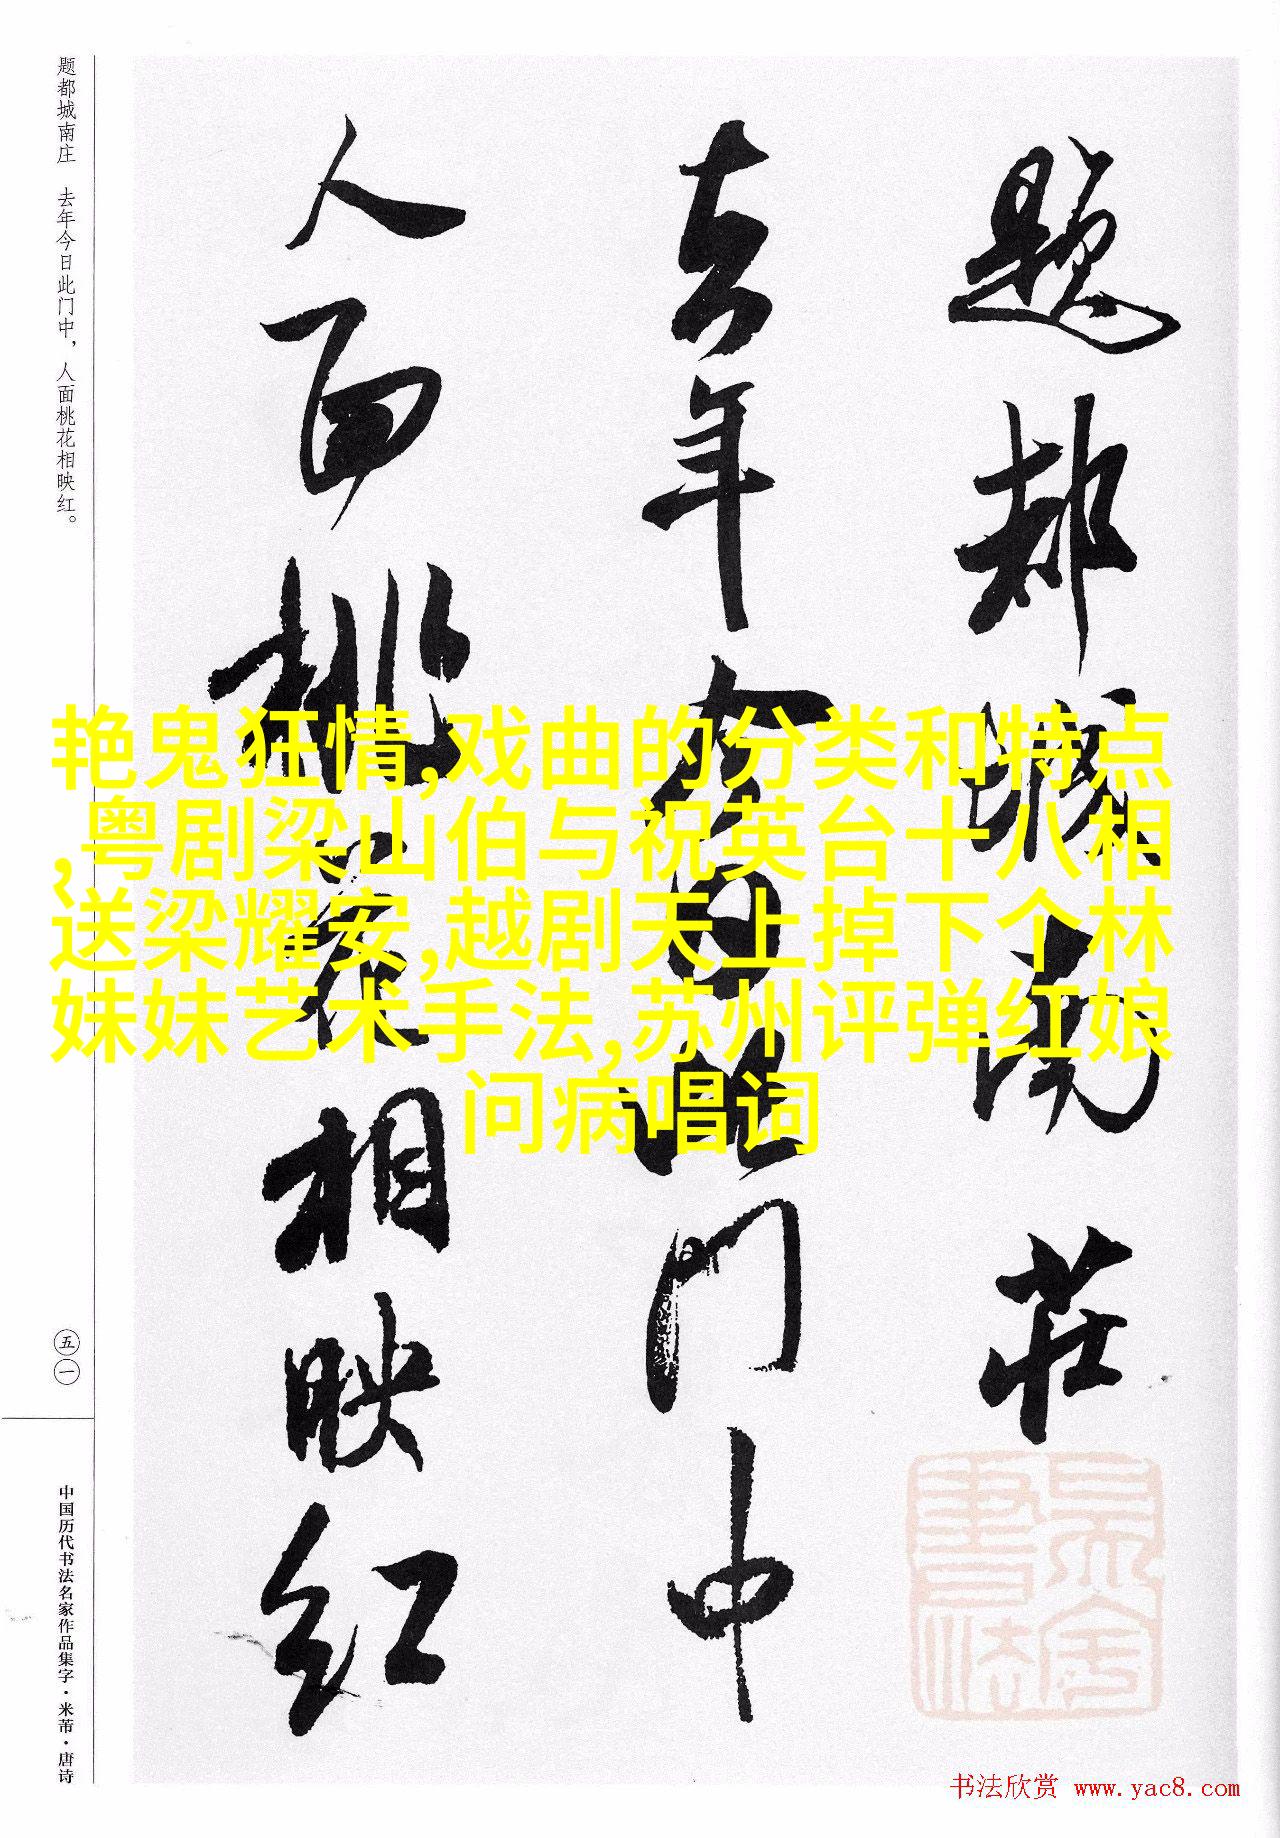 题都城南庄 去年今日此门中，人面桃花相映红。
题都城南莊
去年今日此门中
人面桃花相映红
艳鬼狂情,戏曲的分类和特点
,粤剧梁山伯与祝英台十八相
送梁耀安,越剧天上掉下个林
妹妹艺术手法,苏州评弹红娘
问病唱词
五一
中国历代书法名家作品集字·米芾·唐诗
书法欣赏 www.yac8.com